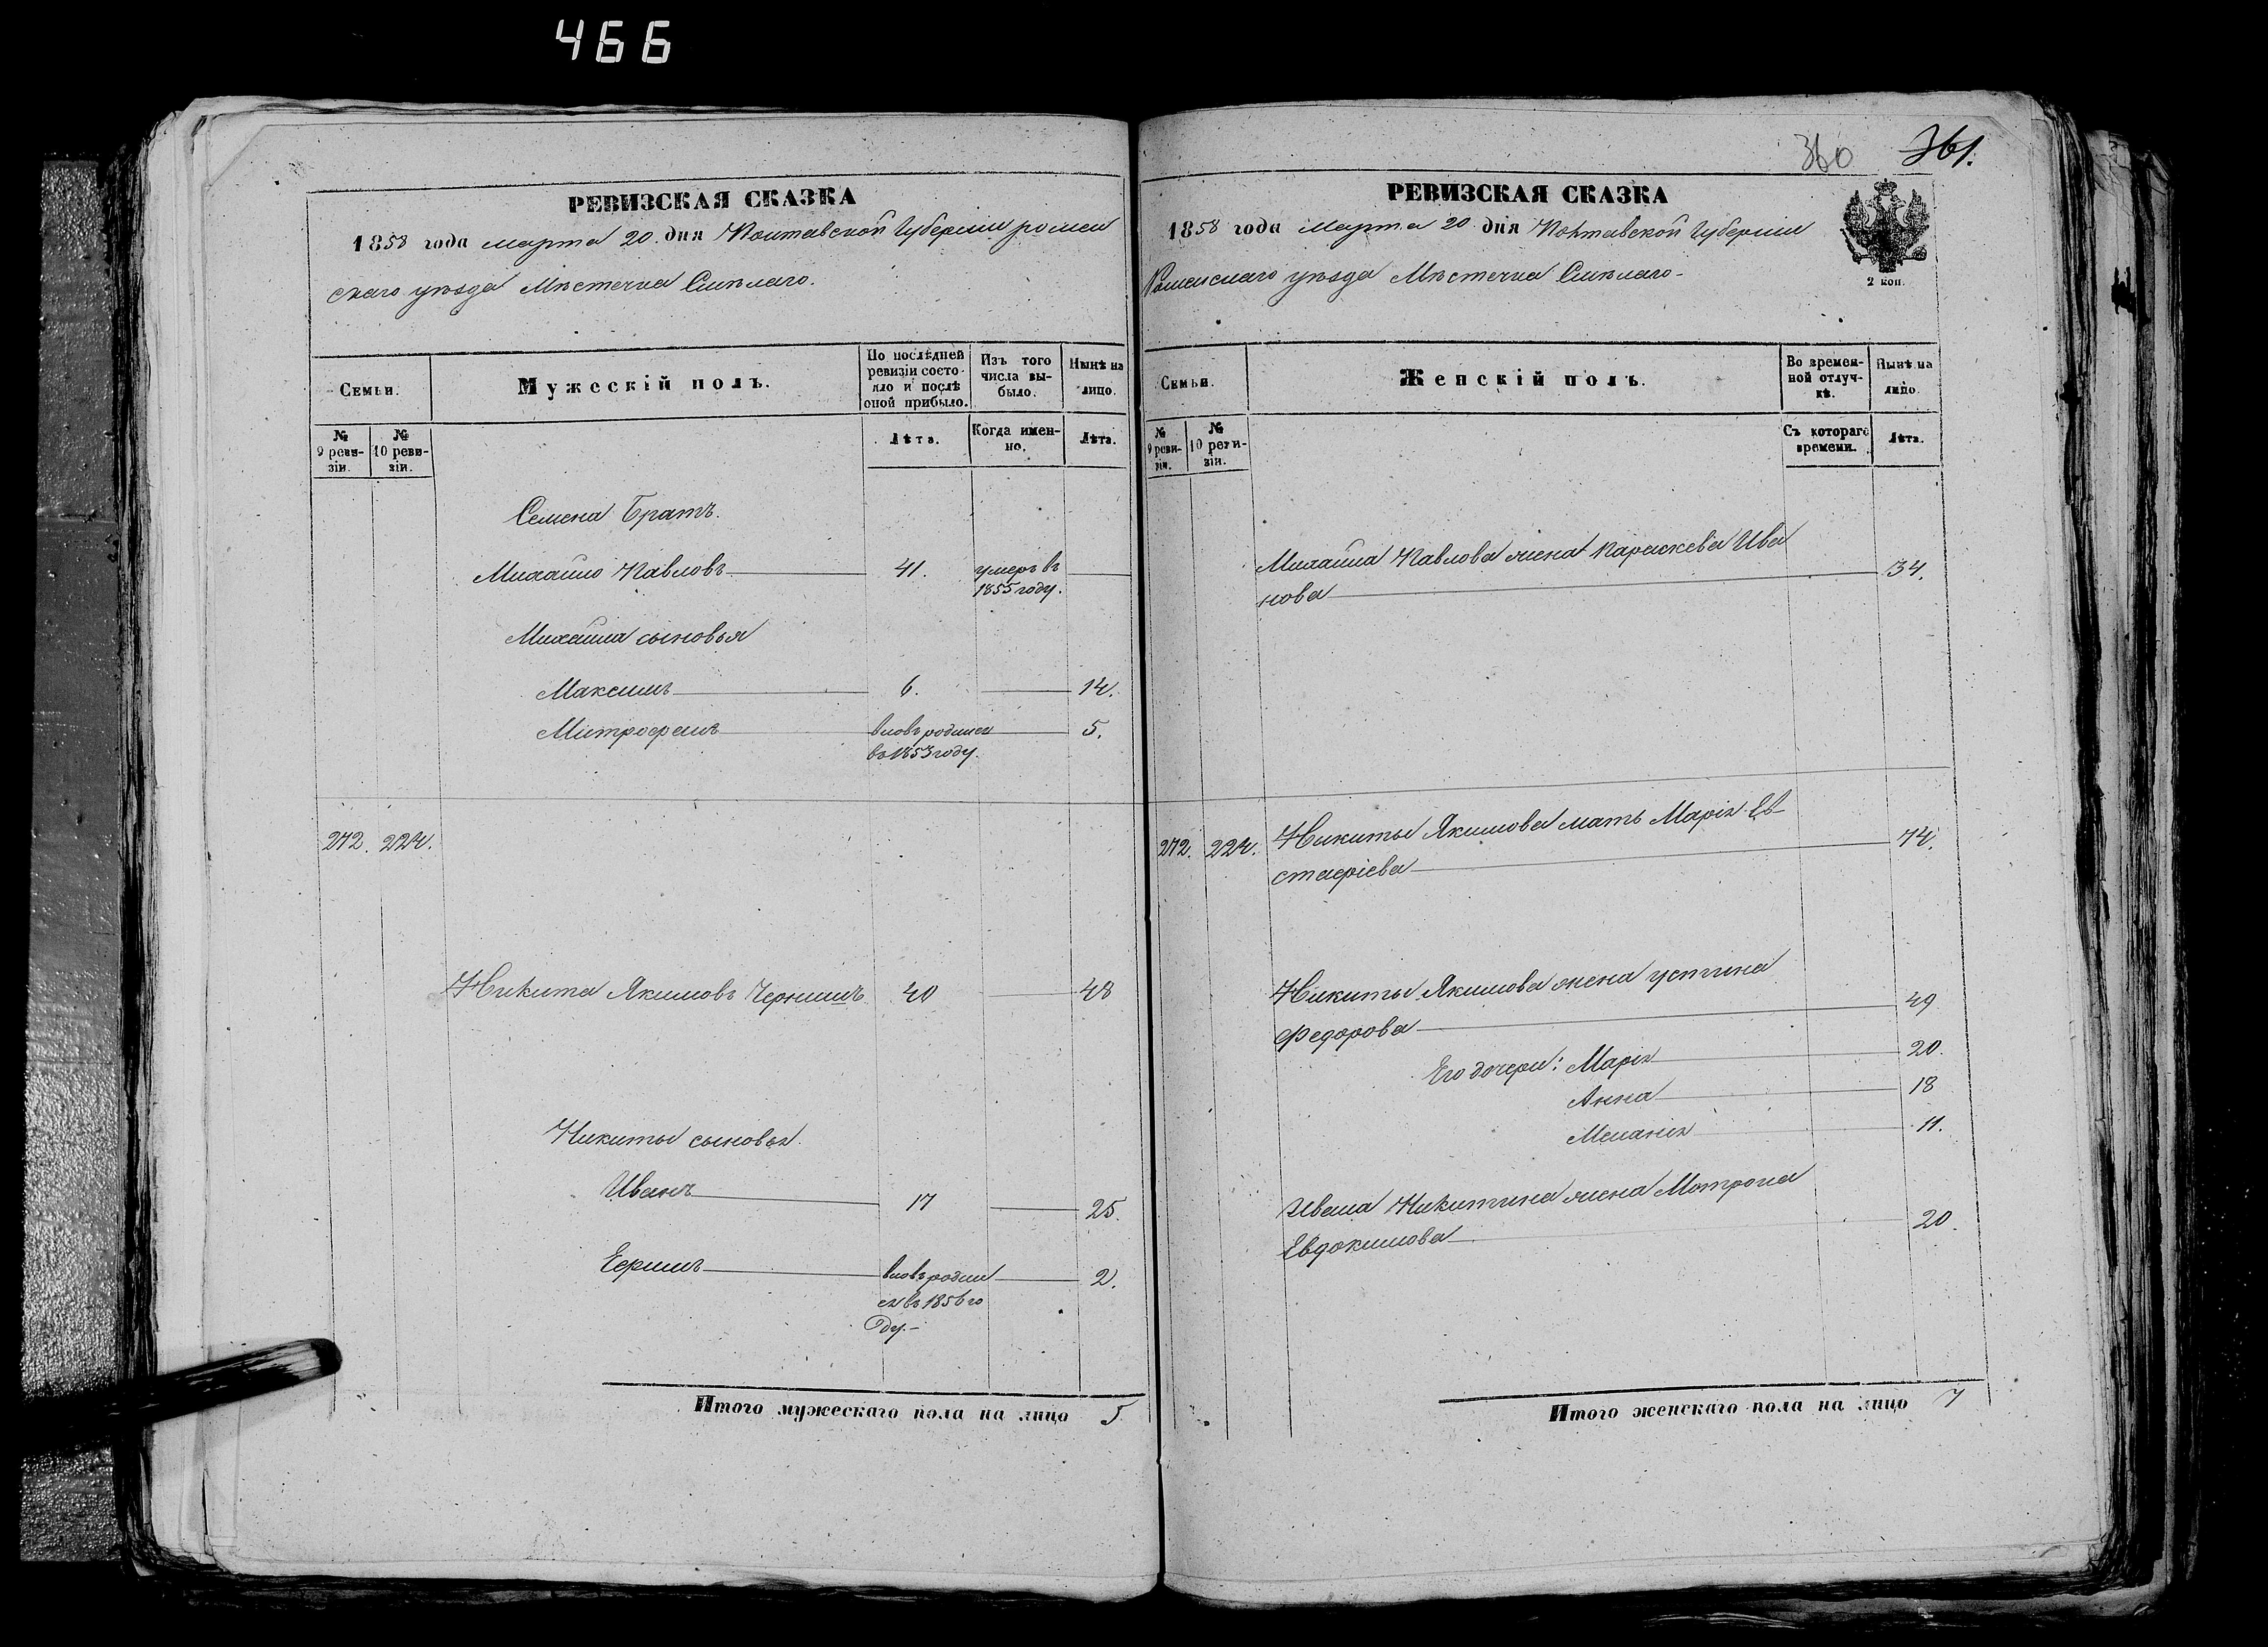 466
360 361.
РЕВИЗСКАЯ СКАЗКА
1858 года марта 20 дня Полтавской Губернии ромен
скаго уѣзда Мѣстечка Смѣлаго.
Семьи.
Мужескій полъ.
По послѣдней ревизіи состояло и послѣ оной прибыло.
Изъ того числа выбыло.
Нынѣ на лицо.
№ 9 ревизіи.
№ 10 ревизіи.
Лѣта.
Когда именно.
Лѣта.
Семена Братъ.
Михайло Павловъ 41. умеръ въ
1855 году.
Михайла сыновья
Максимъ 6. 14.
Митрофанъ вновь родился 5.
въ 1853 году.
272. 224.
Никита Якимовъ Чернышъ 40 48
Никиты сыновья.
Иванъ 17 25.
Ефимъ вновь родил 2.
ся въ 1856 го
ду.-
Итого мужескаго пола на лицо 5
РЕВИЗСКАЯ СКАЗКА
1858 года марта 20 дня Полтавской Губернии
Роменскаго уѣзда Мѣстечка Смѣлаго-
2 коп.
Семьи.
Женскій полъ.
Во временной отлучкѣ.
Нынѣ на лицо.
№ 9 ревизіи.
№ 10 ревизіи.
Съ котораго времени.
Лѣта.
Михайла Павлова жена Параскева Ива
нова 34.
272. 224. Никиты Якимова мать Марія Ев
стафіева 74.
Никиты Якимова жена Устина
Федорова 49
Его дочери: Марія 20.
Анна 18
Меланія 11.
Ивана Никитина жена Мотрона
Евдокимова 20.
Итого женскаго пола на лицо 7